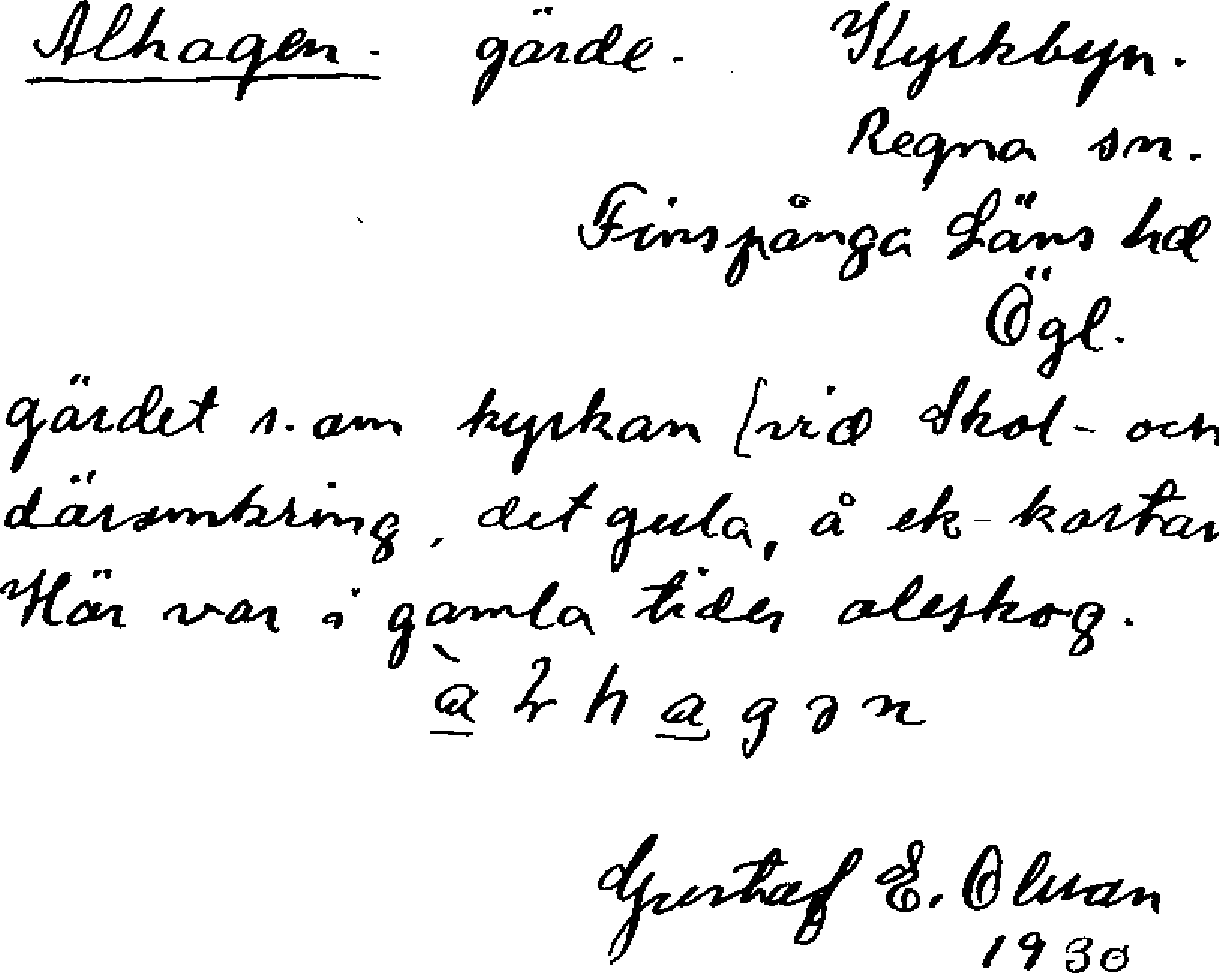 Alhagen. gärde. Kyrkbyn.
Regna sn.
Finspånga Läns hd
Ögl.
gärdet s. om kyrkan (vid Skol- och
däromkring, det gula, å ek-kartan
Här var i gamla tider aleskog.
Gustaf E. Olsson
1930